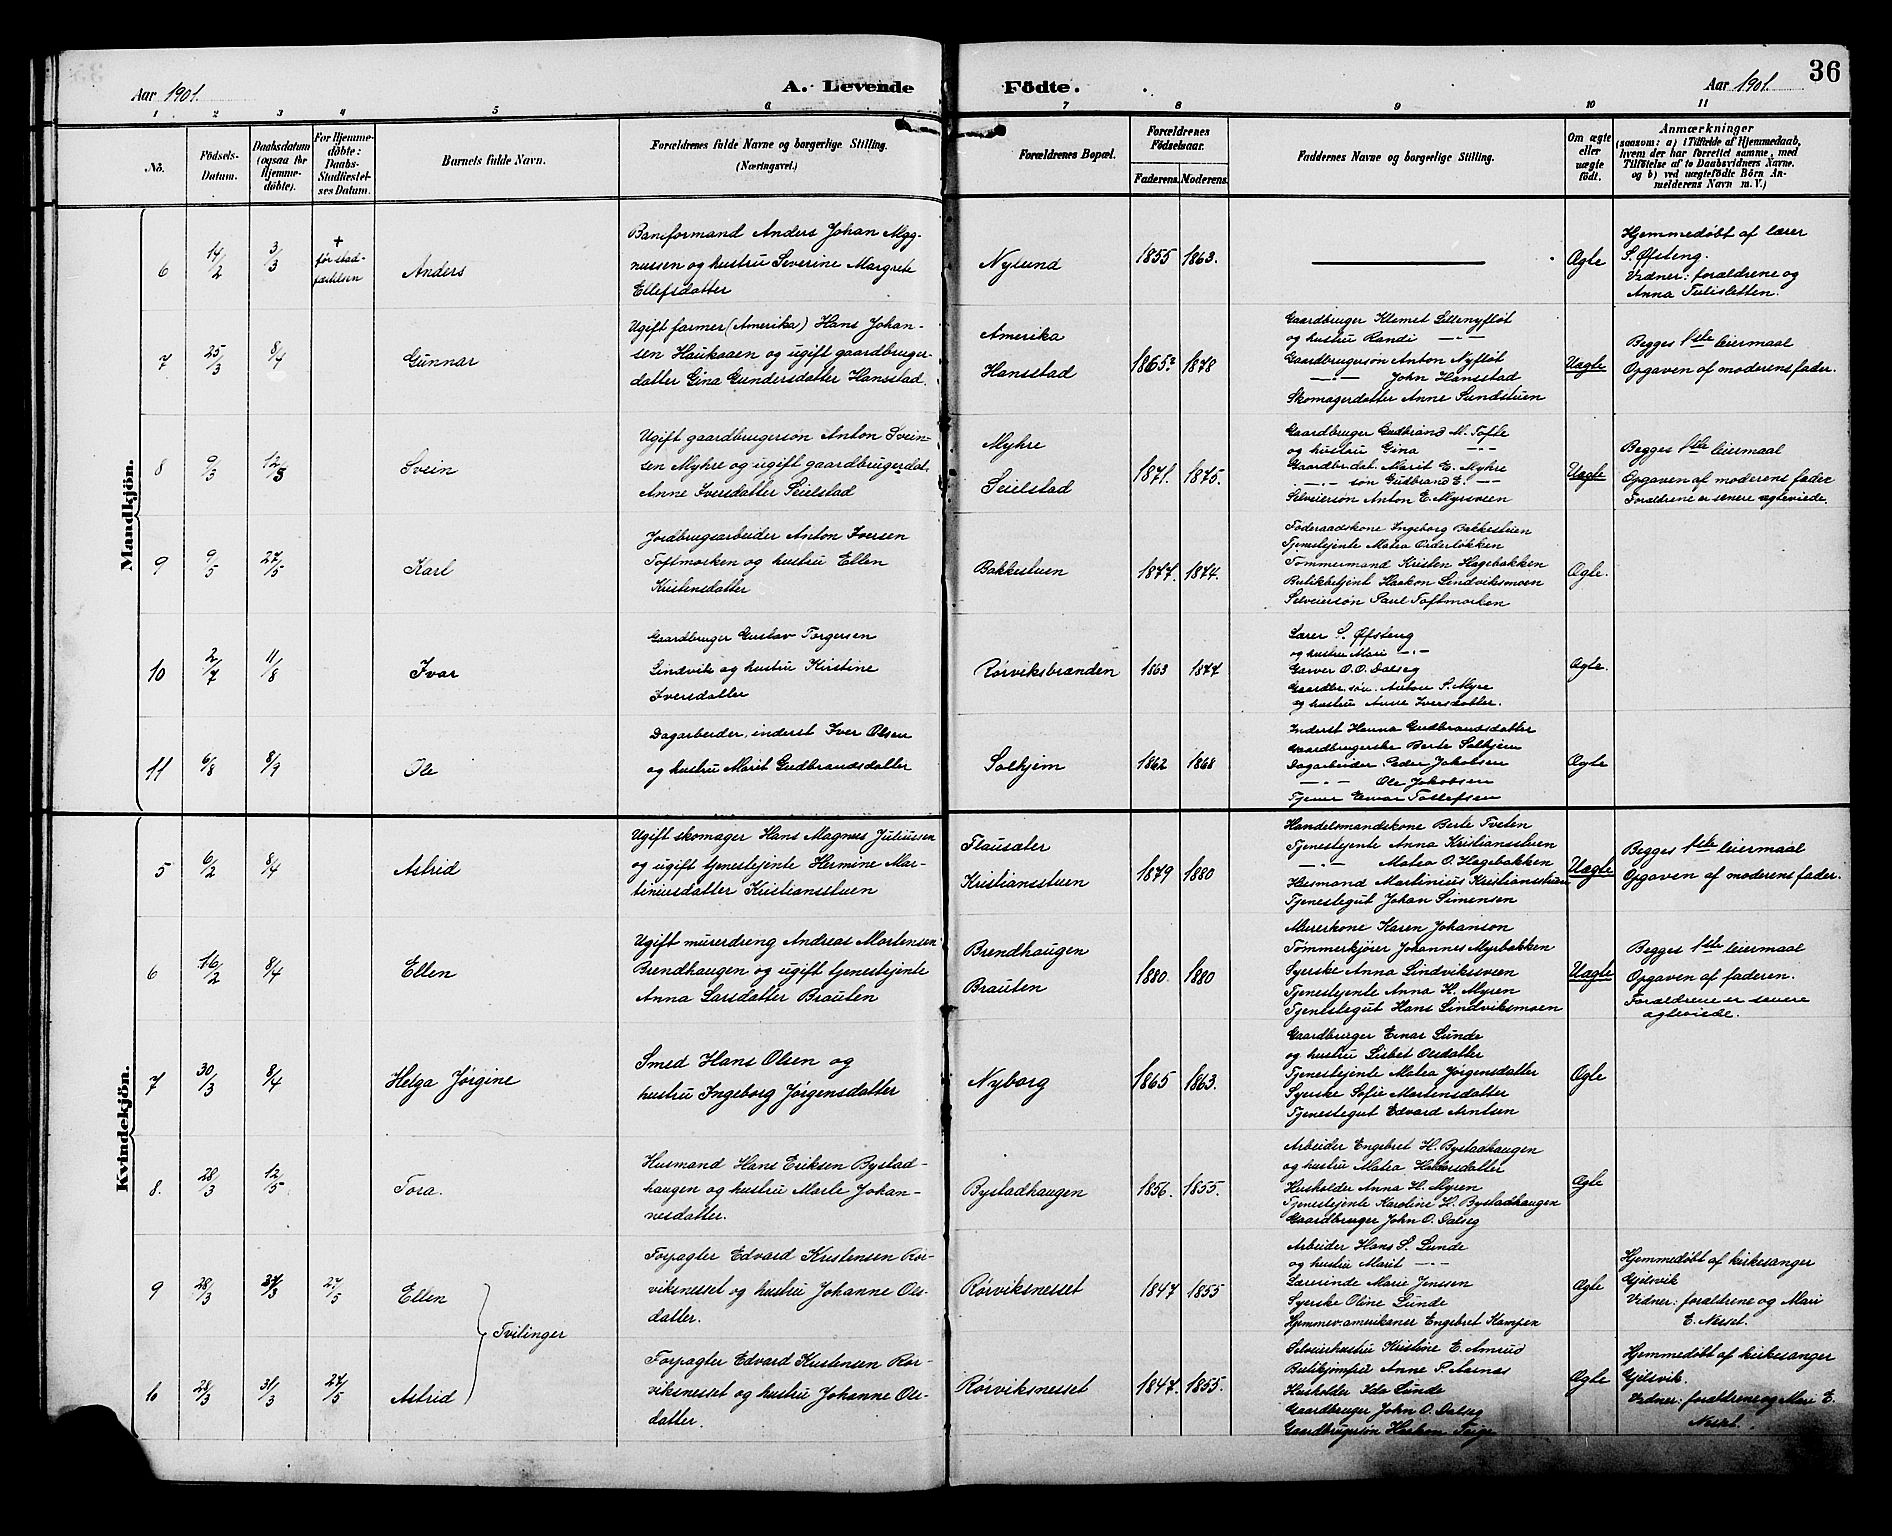 36
Aar 1901.
A. Levende
Födte.
Aar 1901.
1 2 3 4 5 6 7 8 9 10 11
No.
Födsels-
Datum.
Daabsdatum
(ogsaa for
Hjemme-
döbte).
For Hjemme-
döbte:
Daabs-
Stadfæstel-
ses Datum.
Barnets fulde Navn.
Forældrenes fulde Navne og borgerlige Stilling.
(Næringsvei.)
Forældrenes Bopæl.
Forældrenes
Födselsaar.
Faderens. Moderens.
Faddernes Navne og borgerlige Stilling.
Om ægte
eller
uægte
födt.
Anmærkninger
(saasom: a) i Tilfælde af Hjemmedaab,
hvem der har forrettet samme, med
Tilföielse af to Daabsvidners Navne.
og b) ved uægtefödte Börn An-
melderens Navn m. V.)
Mandkjön.
6
14/2
3/3
+
før stad-
fæstelsen
Anders
Baneformand Anders Johan Mag-
nussen og hustru Severine Margrete
Ellefsdatter
Nylund
1855 1863.
Ægte
Hjemmedøbt af lærer
S. Øfsteng.
Vidner: forældrene og
Anna Tulisletten.
7
25/3
8/4
Gunnar
Ugift farmer (Amerika) Hans Johan-
sen Haukaaen og ugift gaardbruger-
datter Gina Gundersdatter Hansstad.
Amerika
Hansstad
1865? 1878
Gaardbruger Klemet Lillenyfløt
og hustru Randi —"—
Gaardbrugersøn Anton Nyfløt
—"— John Hansstad
Skomagerdatter Anne Sundstuen
Uægte
Begges 1ste leiermaal
Opgaven af moderens fader.
8
9/3
12/5
Svein
Ugift gaardbrugersøn Anton Svein-
sen Myhre og ugift gaardbrugerdat.
Anne Iversdatter Seielstad
Myhre
Seielstad
1871. 1875.
Gaardbruger Gudbrand M. Tofte
og hustru Gina —"—
Gaardbr.dat. Marit E. Myhre
—"— søn Gudbrand E. —"—
Selveiersøn Anton E. Myrsveen
Uægte
Begges 1ste leiermaal
Opgaven af moderens fader
Forældrene er senere ægteviede.
9
9/5
27/5
Karl
Jordbrugsarbeider Anton Iversen
Toftmorken og hustru Ellen
Kristensdatter
Bakkestuen
1877. 1874.
Føderaadskone Ingeborg Bakkestuen
Tjenestejente Matea Orderløkken
Tømmermand Kristen Hagebakken
Butikbetjent Haakon Lindviksmoen
Selveiersøn Paul Toftmorken
Ægte.
10
2/7
11/8
Ivar
Gaardbruger Gustav Torgersen
Lindvik og hustru Kirstine
Iversdatter
Rørviksbraenden
1863 1877
Lærer S. Øfsteng
og hustru Mari —"—
Garver O. O. Dalseg
Gaardbr.søn. Anton S. Myre
og hustru Anne Iversdatter.
Ægte.
11
6/8
8/9
Ole
Dagarbeider, inderst Iver Olsen
og hustru Marit Gudbrandsdatter
Solhjem
1862 1868
Inderst Hanna Gudbrandsdatter
Gaardbrugerske Berte Solhjem
Dagarbeider Peder Jakobsen
—"— Ole Jakobsen
Tjener Einar Tollefsen
Ægte
Kvindekjön.
5
6/2
8/4
Astrid
Ugift skomager Hans Magnus Juliussen
og ugift tjenestejente Hermine Mar-
tiniusdatter Kristiansstuen
Flausæter
Kristiansstuen
1879 1880
Handelsmandskone Berte Tveten
Tjenestejente Anna Kristiansstuen
—"— Matea O. Hagebakken
Husmand Martinius Kristiansstuen
Tjenestegut Johan Simensen
Uægte
Begges 1ste leiermaal
Opgaven af moderens fader.
6
16/2
8/4
Ellen
Ugift murerdreng Andreas Mortensen
Brendhaugen og ugift tjenestejente
Anna Larsdatter Brauten
Brendhaugen
Brauten
1880. 1880
Murerkone Karen Johanson
Tømmerkjører Johannes Myrbakken
Syerske Anna Lindviksveen
Tjenestejente Anna H. Myren
Tjenestegut Hans Lindviksmoen
Uægte
Begges 1ste leiermaal
Opgaven af faderen.
Forældrene er senere
ægteviede.
7
30/3
8/4
Helga Jørgine
Smed Hans Olsen og
hustru Ingeborg Jørgensdatter
Nyborg
1865 1863.
Gaardbruger Einar Lunde
og hustru Lisbet Olsdatter
Tjenestejente Matea Jørgensdatter
Syerske Sofie Mortensdatter
Tjenestegut Edvard Arntsen
Ægte
8.
28/3
12/5
Tora.
Husmand Hans Eriksen Bystad-
haugen og hustru Marte Johan-
nesdatter.
Bystadhaugen
1856. 1855.
Arbeider Engebret H. Bystadhaugen
og hustru Matea Halvorsdatter
Husholder Anna H. Myren
Tjenestejente Karoline H. Bystadhaugen
Gaardbruger John O. Dalseg
Ægte
9
28/3
31/3
27/5
Ellen
Tvilinger
Forpagter Edvard Kristensen Rør-
viksnesset og hustru Johanne Ols-
datter.
Rørviksnesset
1847 1855
Arbeider Hans S. Lunde
og hustru Marit —"—
Lærerinde Marie Jenssen
Syerske Oline Lunde
Hjemmev. amerikaner Engebret Kampen
Ægte
Hjemmedøbt af kirkesanger
Gjelsvik
Vidner: forældrene og Mari
E. Nesset.
10
28/3
31/3
27/5
Astrid
Forpagter Edvard Kristensen Rør-
viksnesset og hustru Johanne Ols-
datter.
Rørviksnesset
1847. 1855.
Selveierhustru Kristine E. Amrud
Butikjomfru Anne P. Aarnæs
Husholder Ida Lunde
Gaardbruger John O. Dalseg
Gaardbrugersøn Haakon
Ægte
Hjemmedøbt af kirkesanger
Gjelsvik.
Vidner: forældrene og Mari E.
Nesset.